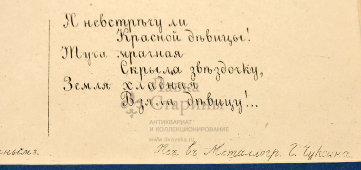 Я невстрѣчу ли
Красной дѣвицы!
Туча мрачная
Скрыла звѣздочку,
Земля хладная
Взяла дѣвицу!...
АНТИКВАРИАТ
И КОЛЛЕКЦИОНИРОВАНИЕ
Въ Металлогр.